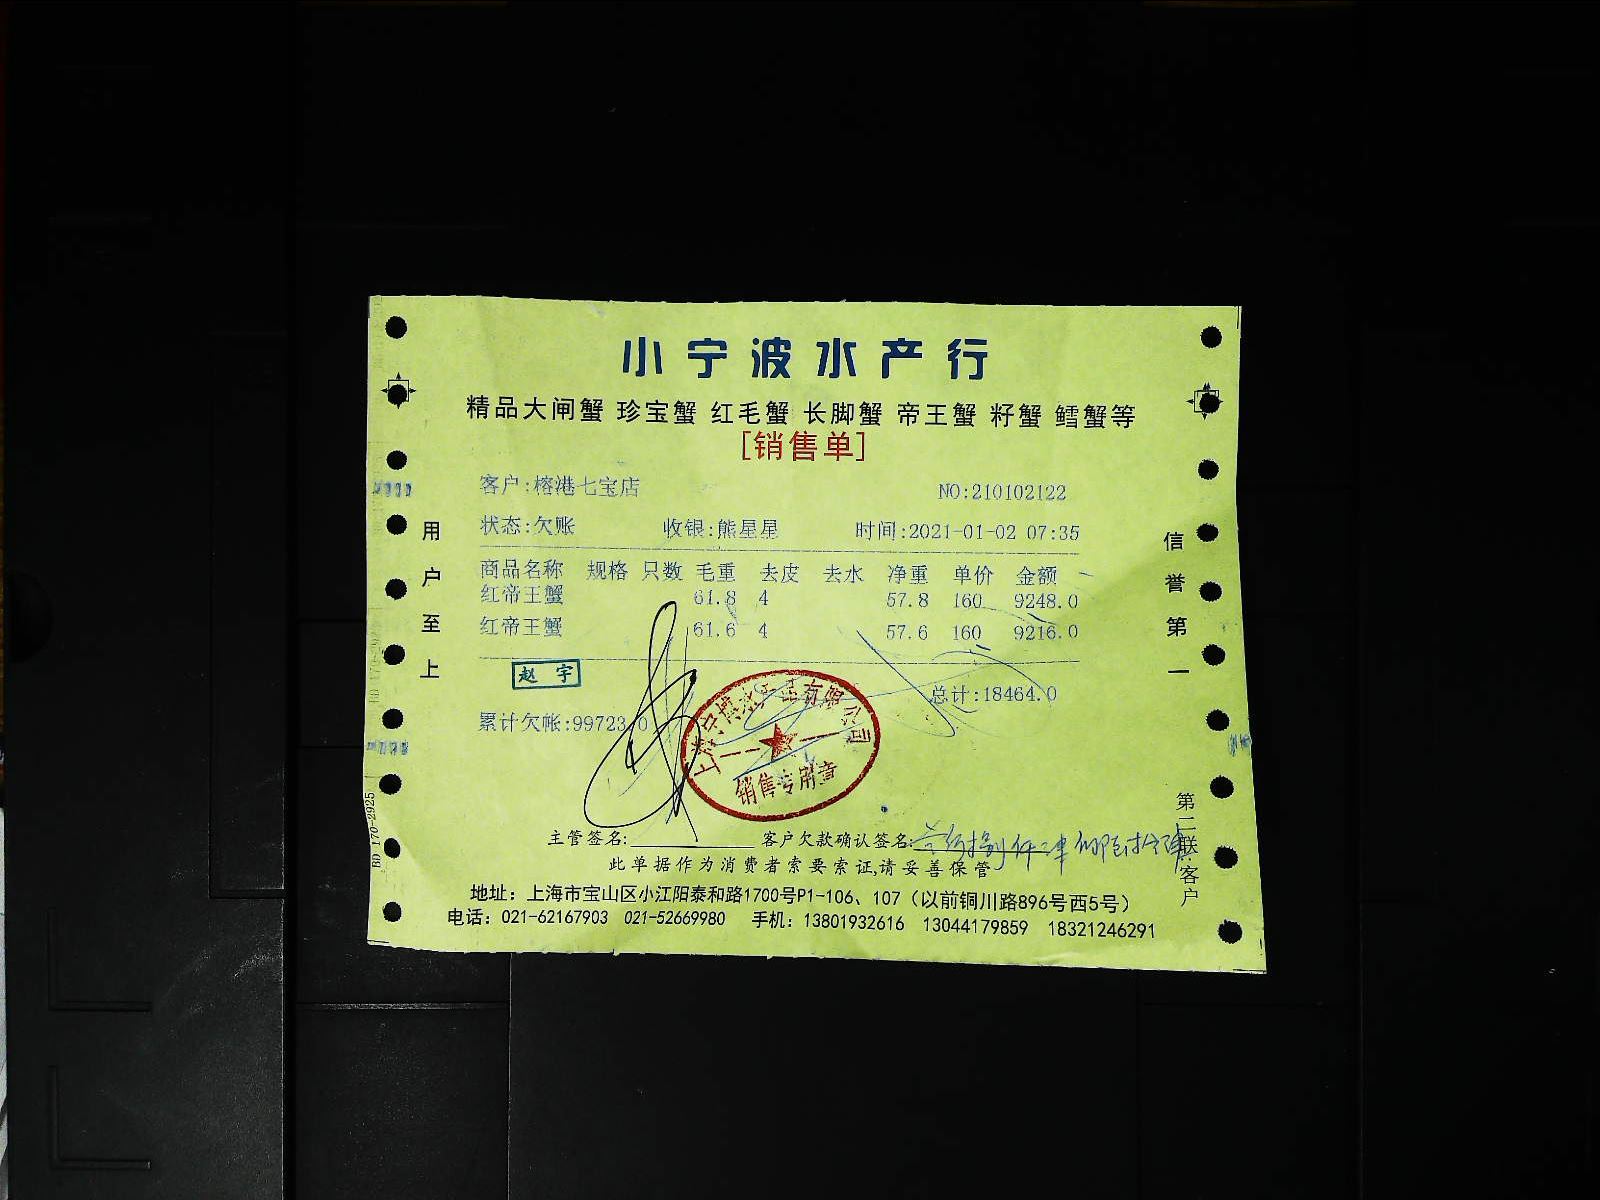 小宁波水产行
精品大闸蟹 珍宝蟹 红毛蟹 长脚蟹 帝王蟹 籽蟹 鳕蟹等
[销售单]
客户:榕港七宝店 NO:210102122
状态:欠账 收银:熊星星 时间:2021-01-02 07:35
商品名称 规格 只数 毛重 去皮 去水 净重 单价 金额
红帝王蟹 61.8 4 57.8 160 9248.0
红帝王蟹 61.6 4 57.6 160 9216.0
赵宇
总计:18464.0
累计欠帐:99723.0
销售专用章
主管签名: 客户欠款确认签名:
此单据作为消费者索要索证,请妥善保管
地址：上海市宝山区小江阳泰和路1700号P1-106、107（以前铜川路896号西5号）
电话：021-62167903 021-52669980 手机：13801932616 13044179859 18321246291
用户至上
信誉第一
第二联:客户
BD 170-2925